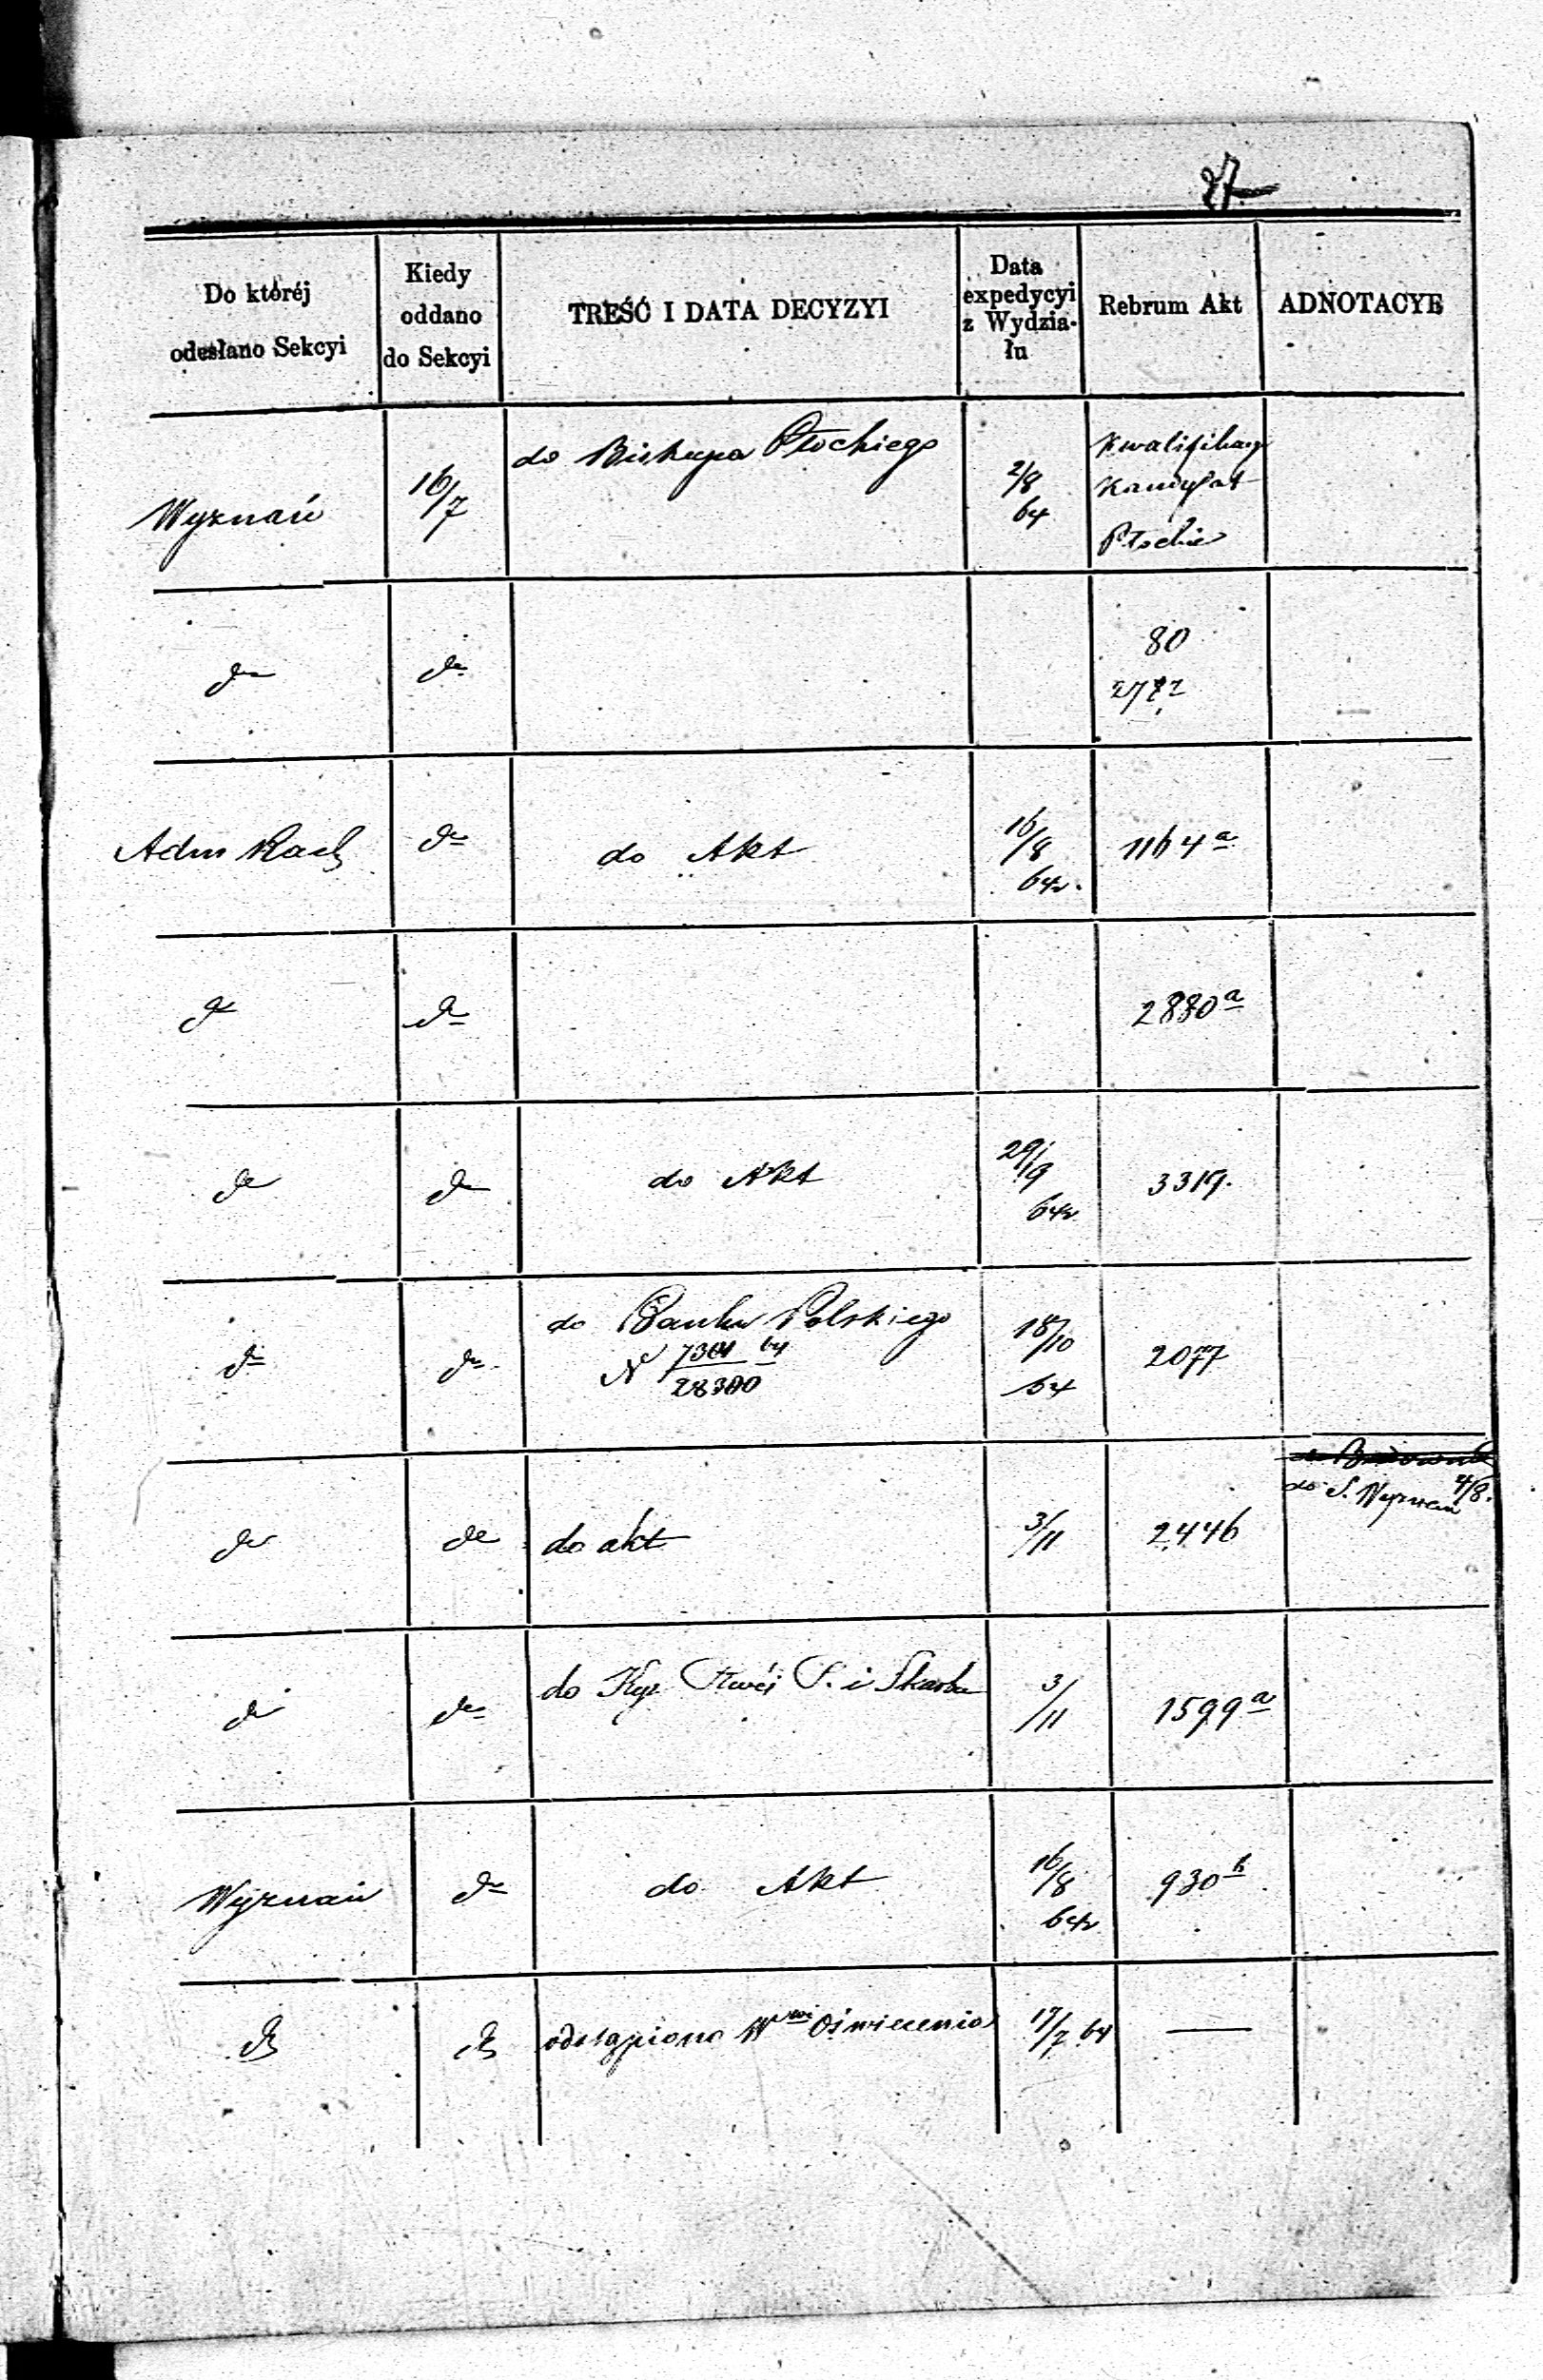 27
Do któréj
odesłano Sekcyi
Kiedy
oddano
do Sekcyi
TREŚĆ I DATA DECYZYI
Data
expedycyi
z Wydzia-
łu
Rebrum Akt
ADNOTACYE
Wyznań
16/7
do Biskupa Płockiego
2/8
64
Kwalifikacye
Kandydat
Płockie
do
do
80
Adm Rach
do
do Akt
16/8
64r.
1164a
do
do
2880a
do
do
do Akt
29/9
64r
3319.
do
do
do Banku Polskiego
N 7301 64
28300
18/10
64
2077
do
do
do akt
3/11
2446
do S. Wyznań 4/8.
do
do
do Kya Rwéj P. i Skarbu
3/11
1599a
Wyznań
do
do Akt
16/8
64r
930b
do
do
odstąpiono Wwi Oświecenia
17/7 64
—